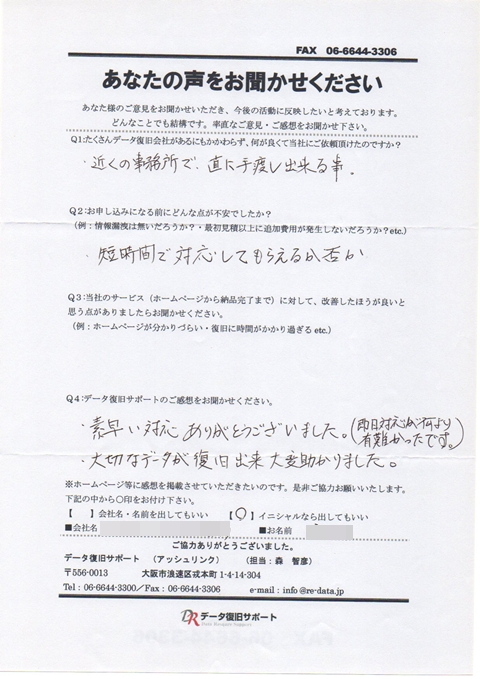 FAX 06-6644-3306
あなたの声をお聞かせください
あなた様のご意見をお聞かせいただき、今後の活動に反映したいと考えております。
どんなことでも結構です。率直なご意見・ご感想をお聞かせ下さい。
Q1:たくさんデータ復旧会社があるにもかかわらず、何が良くて当社にご依頼頂けたのですか?
・近くの事務所で、直に手渡し出来る事。
Q2:お申し込みになる前にどんな点が不安でしたか?
(例:情報漏洩は無いだろうか?・最初見積以上に追加費用が発生しないだろうか?etc.)
・短時間で対応してもらえるか否か
Q3:当社のサービス(ホームページから納品完了まで)に対して、改善したほうが良いと
思う点がありましたらお聞かせください。
(例:ホームページが分かりづらい・復旧に時間がかかり過ぎる etc.)
Q4:データ復旧サポートのご感想をお聞かせください。
・素早い対応ありがとうございました。(即日対応が何より
有難かったです。)
・大切なデータが復旧出来大変助かりました。
※ホームページ等に感想を掲載させていただきたいのです。是非ご協力お願いいたします。
下記の中から〇印をお付け下さい。
【 】会社名・名前を出してもいい 【〇】イニシャルなら出してもいい
■会社名 ■お名前
ご協力ありがとうございました。
データ復旧サポート (アッシュリンク) (担当:森 智彦)
〒556-0013 大阪市浪速区戎本町 1-4-14-304
Tel:06-6644-3300/Fax:06-6644-3306 e-mail:info@re-data.jp
DR データ復旧サポート
Data Rescue Support